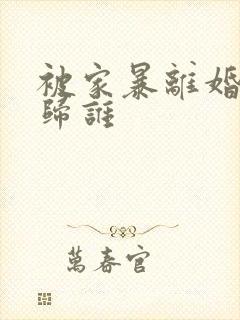 被家暴離婚
歸誰
萬春官